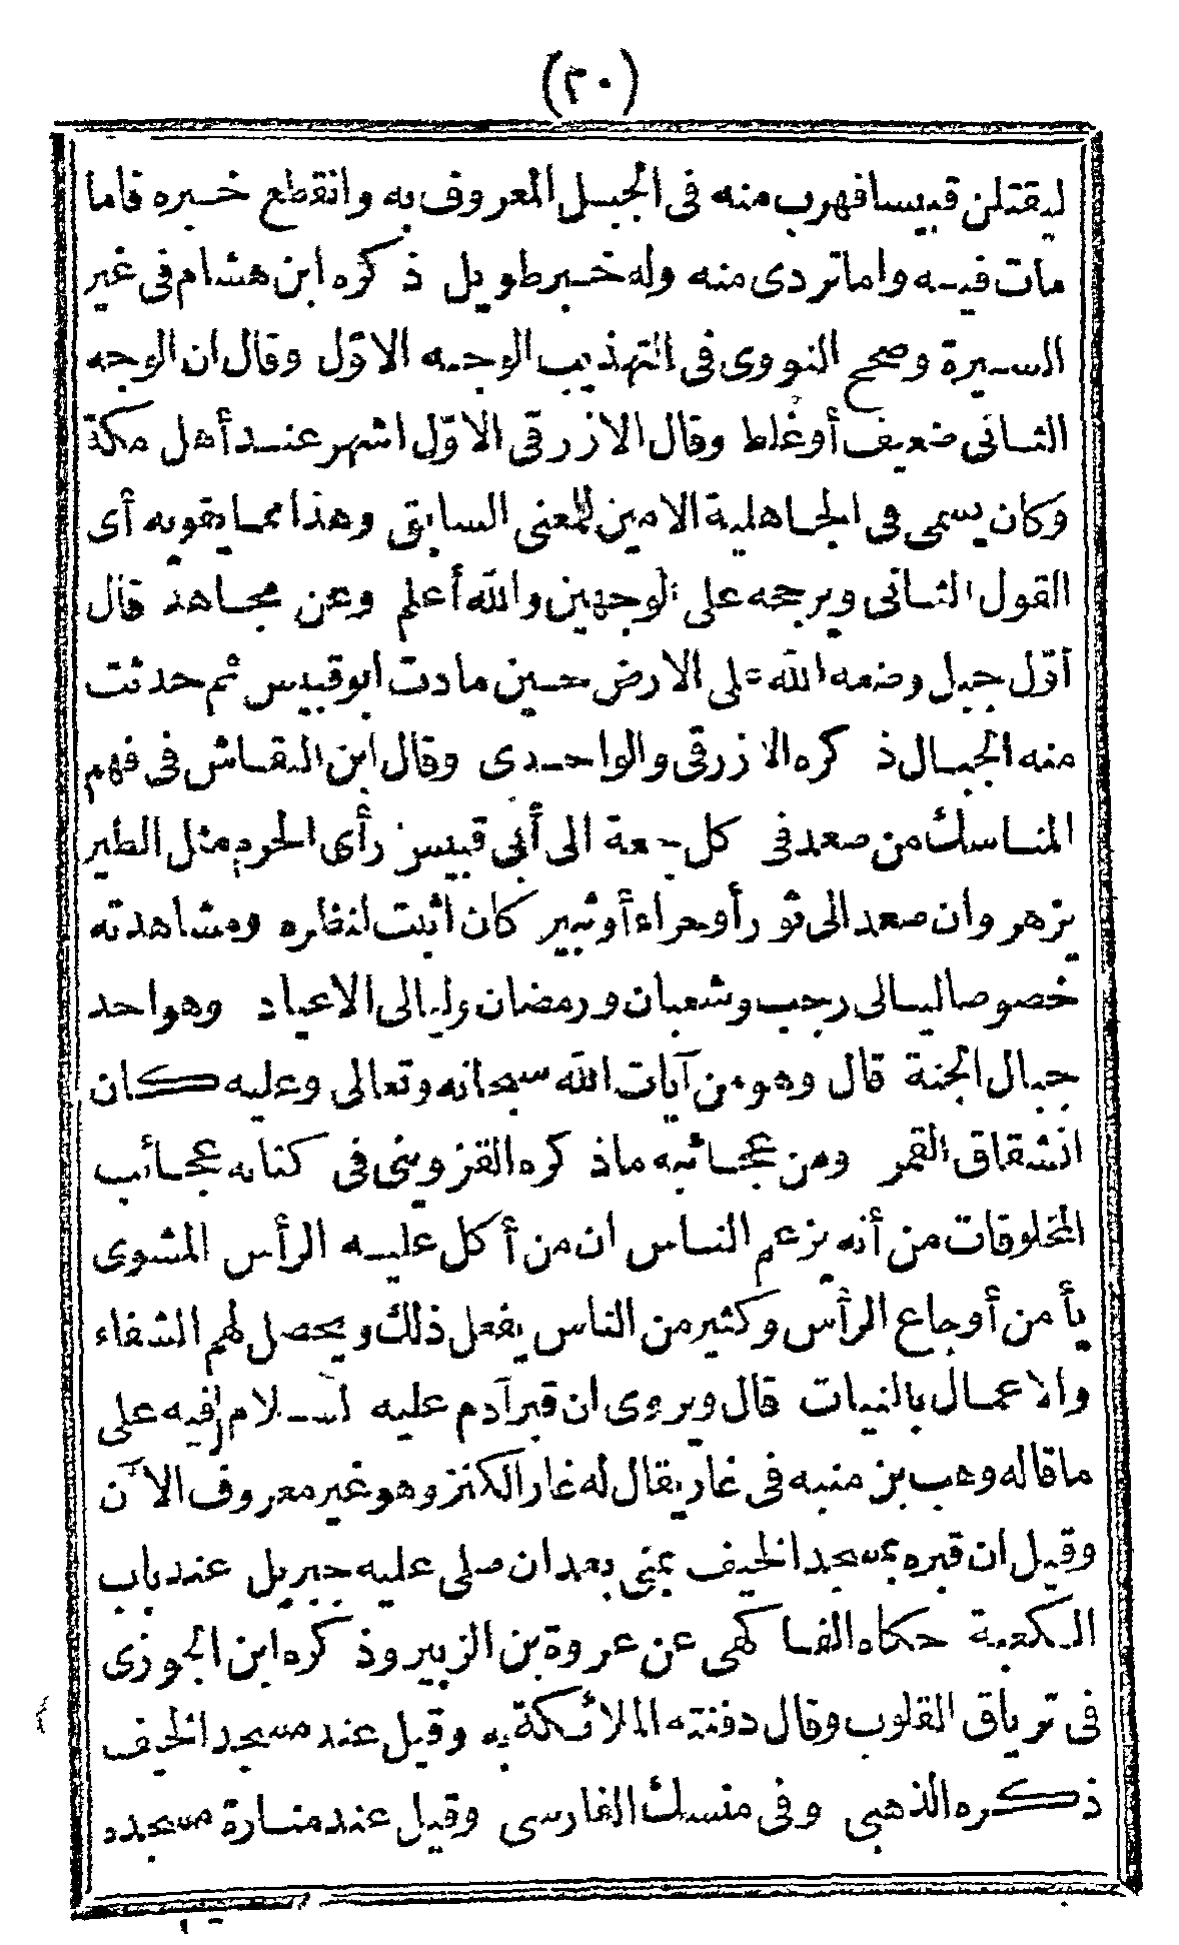 (٣٠)
ليقتلن قبيسا فهرب منه فى الجبل المعروف به وانقطع خبره فاما
مات فيه واما تردى منه وله خبر طويل ذكره ابن هشام فى غير
السيرة وصحح النووى فى التهذيب الوجه الاوّل وقال ان الوجه
الثانى ضعيف أو غلط وقال الازرقى الاوّل اشهر عند أهل مكة
وكان يسمى فى الجاهلية الامين للمعنى السابق وهذا مما يقويه أى
القول الثانى ويرجحه على الوجهين والله أعلم وعن مجاهد قال
أوّل جبل وضعه الله على الارض حين مادت ابو قبيس ثم حدثت
منه الجبال ذكره الازرقى والواحدى وقال ابن النقاش فى فهم
المناسك من صعد فى كل جمعة الى أبى قبيس رأى الحرم مثل الطير
يزهر وان صعد الى ثور أو حراء أو ثبير كان اثبت لنظره ومشاهدته
خصوصا ليالى رجب وشعبان ورمضان وليالى الاعياد وهو احد
جبال الجنة قال وهو من آيات الله سبحانه وتعالى وعليه كان
انشقاق القمر ومن عجائبه ماذكره القزوينى فى كتابه عجائب
المخلوقات من أنه يزعم الناس ان من أكل عليه الرأس المشوى
يأمن أوجاع الرأس وكثير من الناس يفعل ذلك ويحصل لهم الشفاء
والاعمال بالنيات قال ويروى ان قبر آدم عليه السلام فيه على
ما قاله وهب بن منبه فى غار يقال له غار الكنز وهو غير معروف الآن
وقيل ان قبره بمسجد الخيف بمنى بعد ان صلى عليه جبريل عند باب
الكعبة حكاه الفاكهى عن عروة بن الزبير وذكره ابن الجوزى
فى ترياق القلوب وقال دفنته الملائكة به وقيل عند مسجد الخيف
ذكره الذهبى وفى منسك الفارسى وقيل عند منارة مسجده